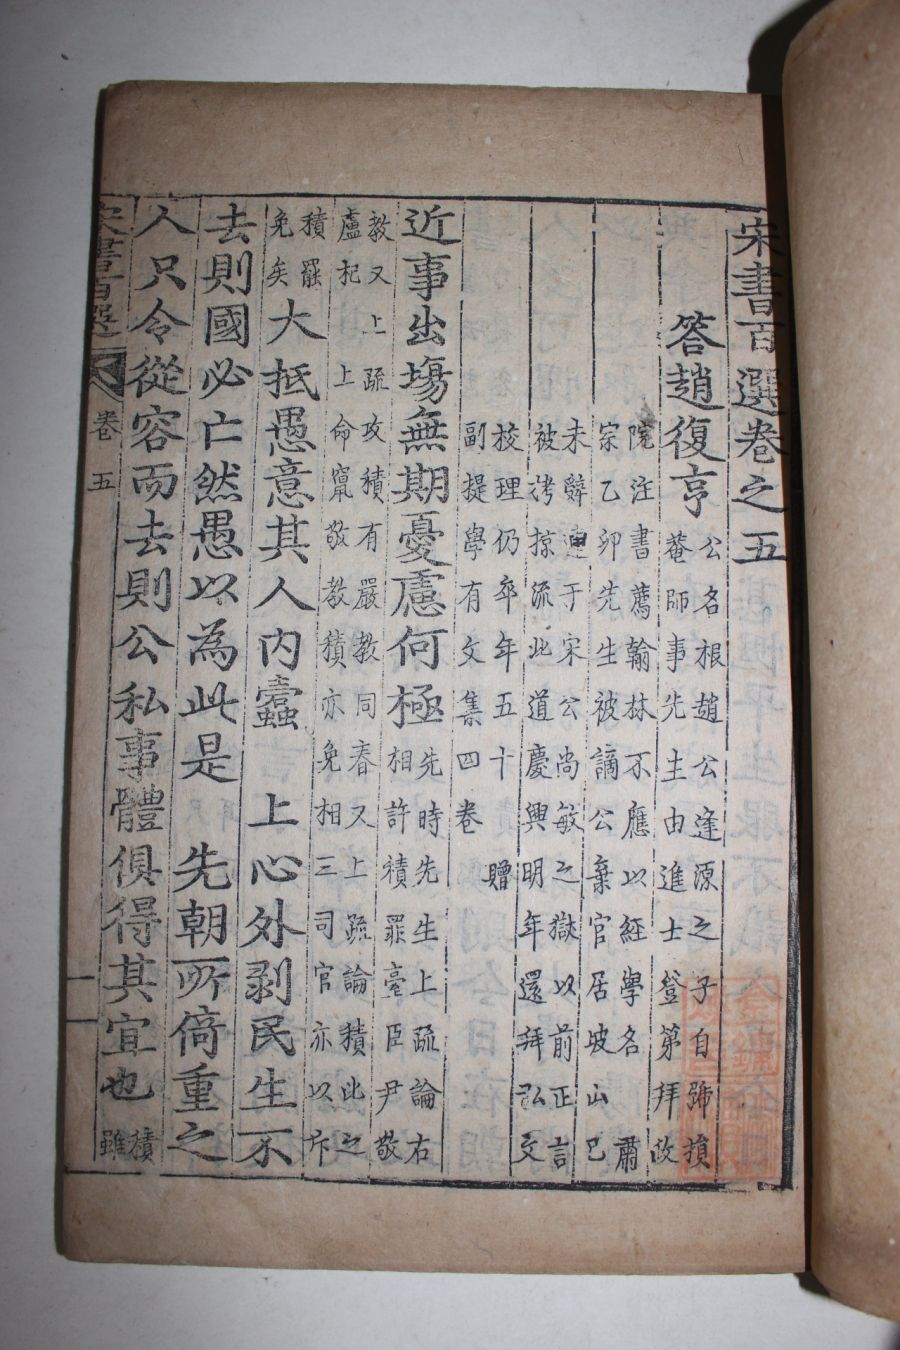 宋書百選卷之五
答趙復亨
公名根趙公逢源之子自號損
菴師事先生由進士登第拜政
院注書薦翰林不應以經學名肅
宗乙卯先生被謫公棄官居坡山已
未辭連于宋公尚敏之獄以前正言
被拷掠流北道慶興明年還拜弘文
校理仍卒年五十贈
副提學有文集四卷
近事出塲無期憂慮何極
先時先生上疏論右
相許積罪臺臣尹敬
教又上疏攻積有嚴教同春又上疏論積此之
盧杞上命竄敬教積亦免相三司官亦以卞
積罷
免矣
大抵愚意其人内蠹上心外剥民生不
去則國必亡然愚以為此是先朝所倚重之
人只令從容而去則公私事體俱得其宜也
積
雖
宋書百選
卷五